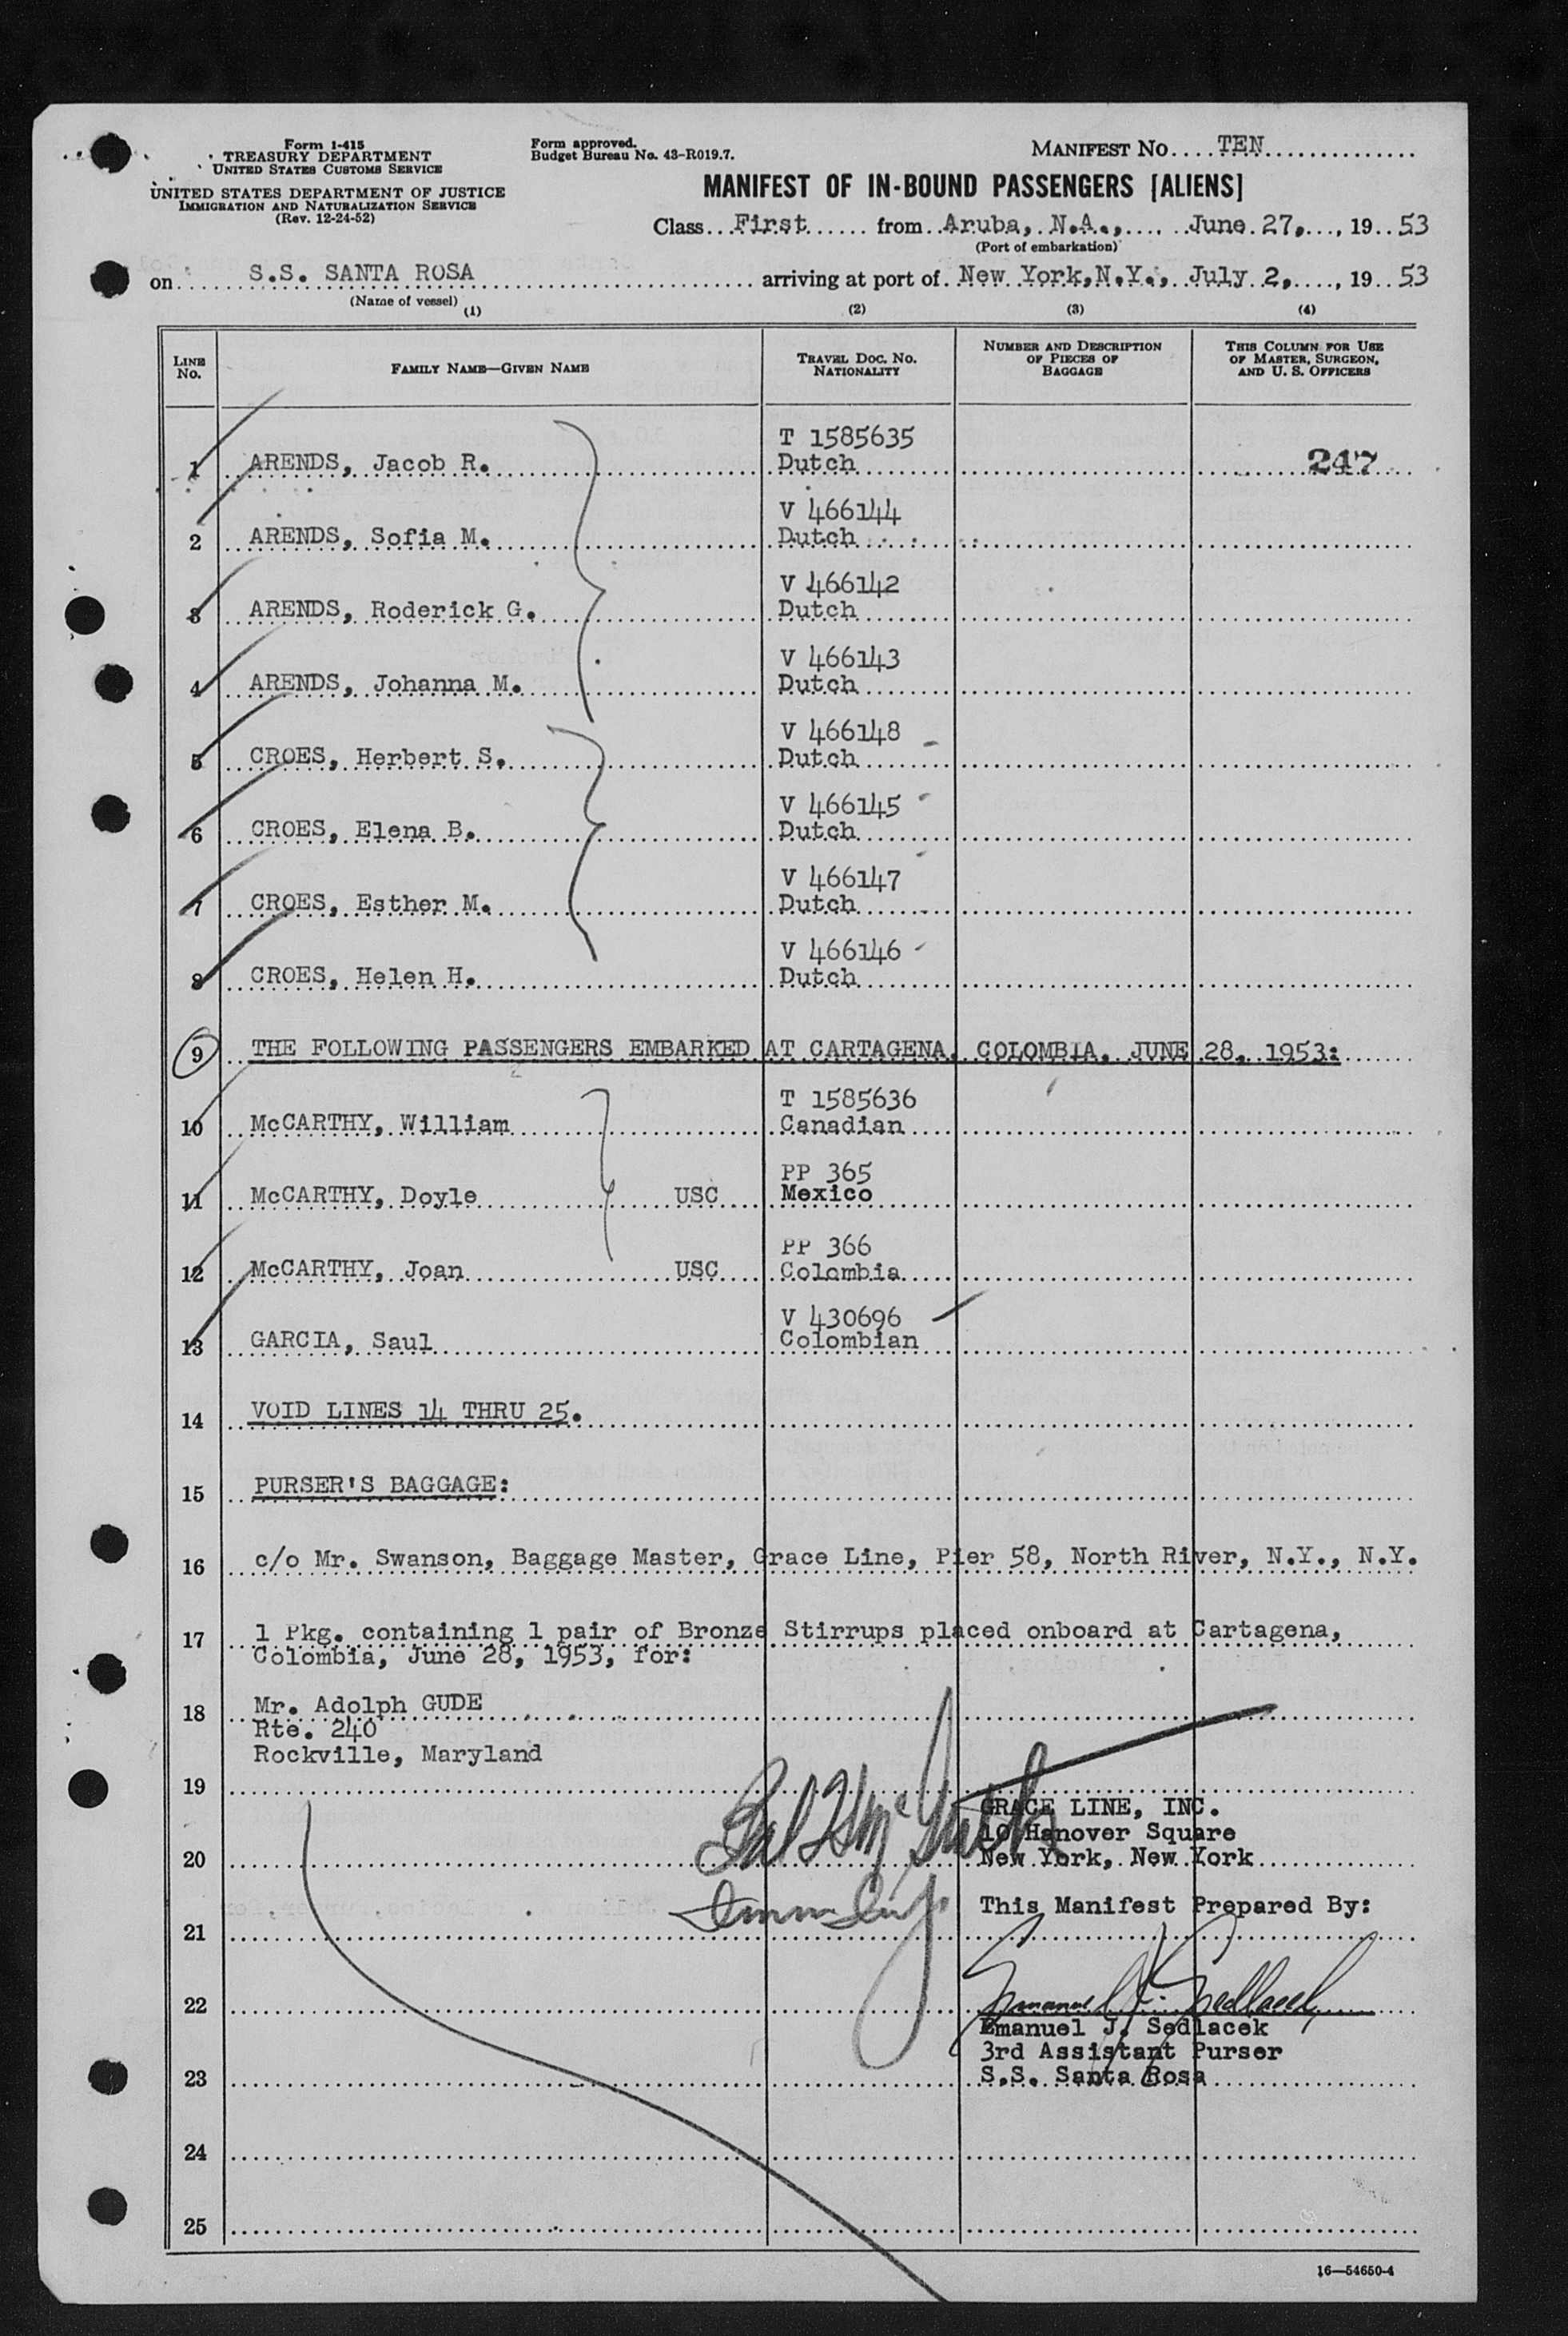 Form I-415
TREASURY DEPARTMENT
UNITED STATES CUSTOMS SERVICE
UNITED STATES DEPARTMENT OF JUSTICE
IMMIGRATION AND NATURALIZATION SERVICE
(Rev. 12-24-52)
Form approved.
Budget Bureau No. 43-R019.7.
MANIFEST NO....TEN
MANIFEST OF IN-BOUND PASSENGERS [ALIENS]
Class...First...... from..Aruba, N.A.,.... June 27,...., 19..53
(Port of embarkation)
on...... S.S. SANTA ROSA ...... arriving at port of New York,N.Y., July 2,...., 19..53
(Name of vessel)
(1) (2) (3) (4)
LINE NO.
FAMILY NAME—GIVEN NAME
TRAVEL DOC. NO. NATIONALITY
NUMBER AND DESCRIPTION OF PIECES OF BAGGAGE
THIS COLUMN FOR USE OF MASTER, SURGEON, AND U. S. OFFICERS
T 1585635
1 ARENDS, Jacob R. Dutch 247
V 466144
2 ARENDS, Sofia M. Dutch
V 466142
3 ARENDS, Roderick G. Dutch
V 466143
4 ARENDS, Johanna M. Dutch
V 466148
5 CROES, Herbert S. Dutch
V 466145
6 CROES, Elena B. Dutch
V 466147
7 CROES, Esther M. Dutch
V 466146
8 CROES, Helen H. Dutch
9 THE FOLLOWING PASSENGERS EMBARKED AT CARTAGENA, COLOMBIA, JUNE 28, 1953:
T 1585636
10 McCARTHY, William Canadian
PP 365
11 McCARTHY, Doyle USC Mexico
PP 366
12 McCARTHY, Joan USC Colombia
V 430696
13 GARCIA, Saul Colombian
14 VOID LINES 14 THRU 25.
15 PURSER'S BAGGAGE:
16 c/o Mr. Swanson, Baggage Master, Grace Line, Pier 58, North River, N.Y., N.Y.
17 1 Pkg. containing 1 pair of Bronze Stirrups placed onboard at Cartagena,
Colombia, June 28, 1953, for:
18 Mr. Adolph GUDE
Rte. 240
Rockville, Maryland
19
GRACE LINE, INC.
10 Hanover Square
20 New York, New York
This Manifest Prepared By:
21
22 Emanuel J. Sedlacek
Emanuel J. Sedlacek
3rd Assistant Purser
23 S.S. Santa Rosa
24
25
16—54650-4